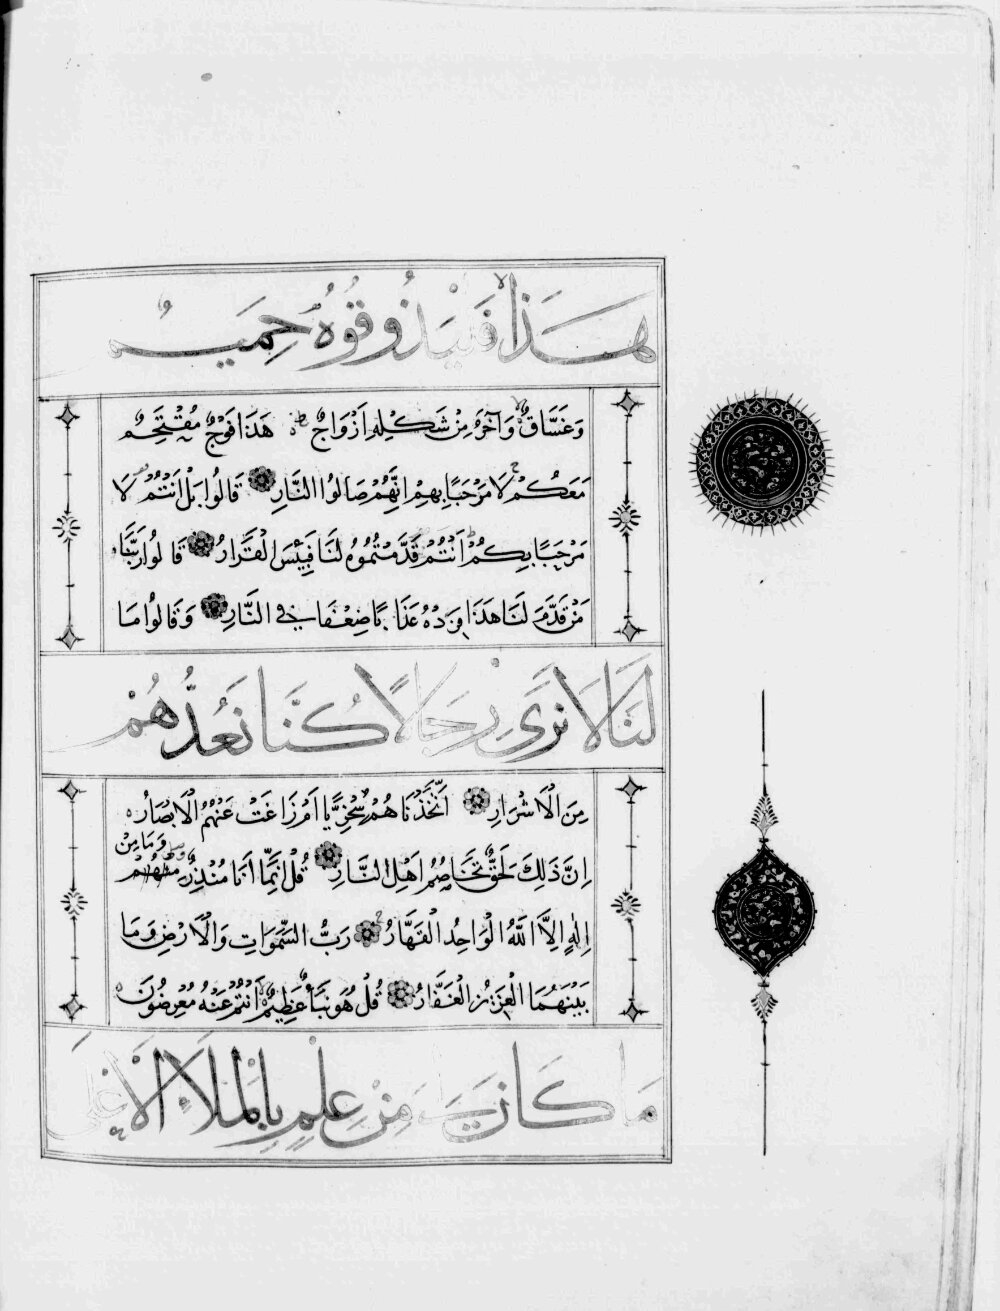 هَذَا فَلْيَذُوقُوهُ حَمِيمٌ
وَغَسَّاقٌ وَآخَرُ مِنْ شَكْلِهِ أَزْوَاجٌ هَذَا فَوْجٌ مُقْتَحِمٌ
مَعَكُمْ لَا مَرْحَبًا بِهِمْ إِنَّهُمْ صَالُوا النَّارِ قَالُوا بَلْ أَنْتُمْ لَا
مَرْحَبًا بِكُمْ أَنْتُمْ قَدَّمْتُمُوهُ لَنَا فَبِئْسَ الْقَرَارُ قَالُوا رَبَّنَا
مَنْ قَدَّمَ لَنَا هَذَا فَزِدْهُ عَذَابًا ضِعْفًا فِي النَّارِ وَقَالُوا مَا
لَنَا لَا نَرَى رِجَالًا كُنَّا نَعُدُّهُمْ
مِنَ الْأَشْرَارِ أَتَّخَذْنَاهُمْ سِخْرِيًّا أَمْ زَاغَتْ عَنْهُمُ الْأَبْصَارُ
إِنَّ ذَلِكَ لَحَقٌّ تَخَاصُمُ أَهْلِ النَّارِ قُلْ إِنَّمَا أَنَا مُنْذِرٌ وَمَا مِنْ
إِلَهٍ إِلَّا اللَّهُ الْوَاحِدُ الْقَهَّارُ رَبُّ السَّمَوَاتِ وَالْأَرْضِ وَمَا
بَيْنَهُمَا الْعَزِيزُ الْغَفَّارُ قُلْ هُوَ نَبَأٌ عَظِيمٌ أَنْتُمْ عَنْهُ مُعْرِضُونَ
مَا كَانَ لِيَ مِنْ عِلْمٍ بِالْمَلَإِ الْأَعْلَى